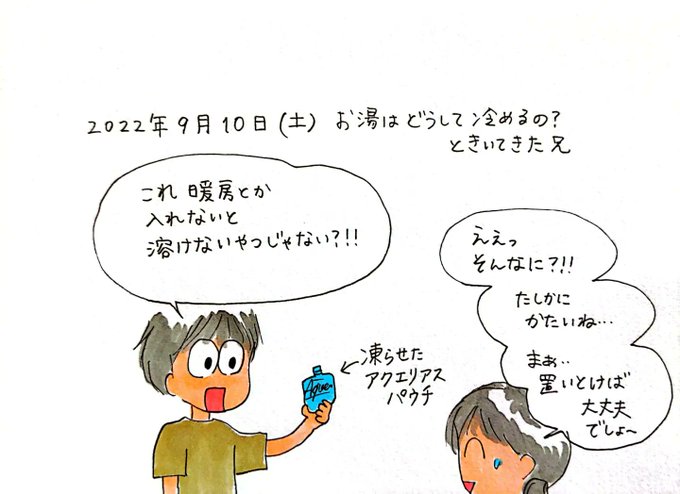 2022年9月10日(土) お湯はどうして冷めるの?
ときいてきた兄
これ暖房とか
入れないと
溶けないやつじゃない?!!
ええっ
そんなに?!!
たしかに
かたいね…
まぁ‥
置いとけば
大丈夫
でしょ〜
←凍らせた
アクエリアス
パウチ
Aquarius